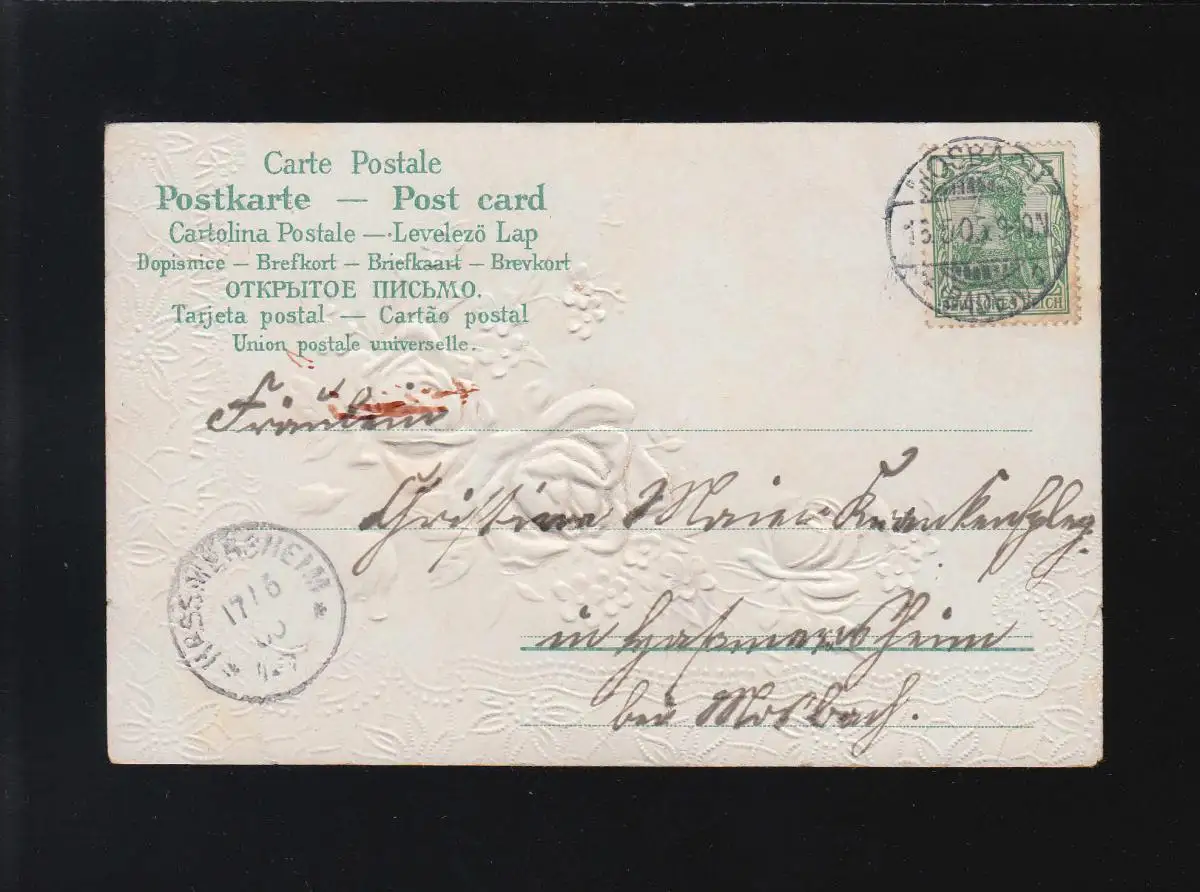 Carte Postale
Postkarte — Post card
Cartolina Postale — Levelező Lap
Dopisnice — Brefkort — Briefkaart — Brevkort
ОТКРЫТОЕ ПИСЬМО.
Tarjeta postal — Cartão postal
Union postale universelle.
MOSBACH
05 9-10N
REICH
Fräulein
Christine Maier Krankenpfleg.
in Haßmersheim
bei Mosbach.
HASSMERSHEIM
17/6